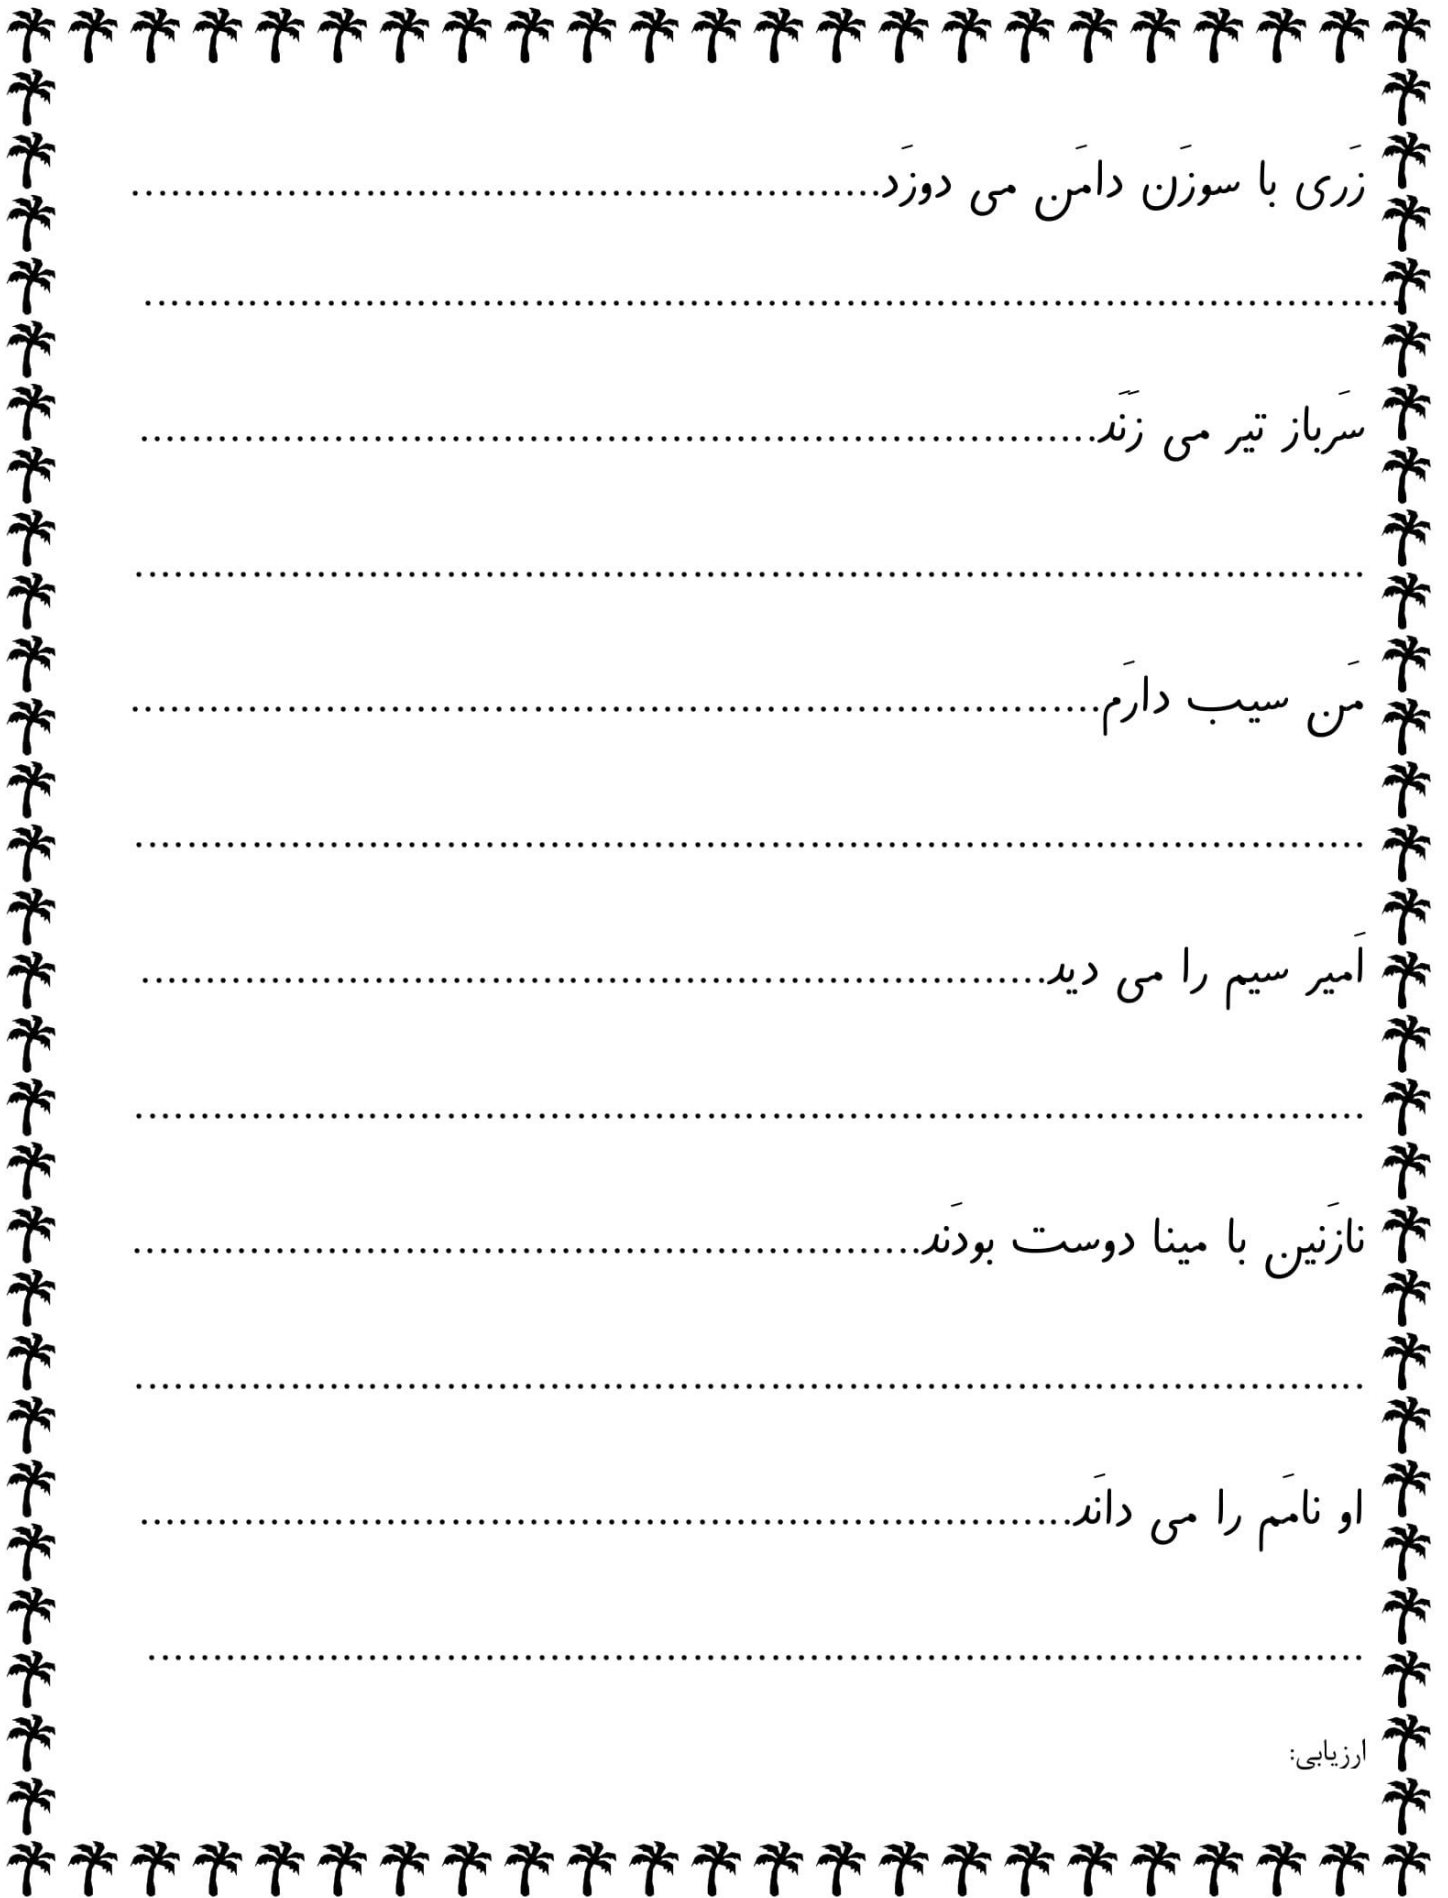 زَری با سوزَن دامَن می دوزَد..........................................................
.................................................................................................
سَرباز تیر می زَنَد..........................................................................
...............................................................................................
مَن سیب دارَم...........................................................................
...............................................................................................
اَمیر سیم را می دید......................................................................
...............................................................................................
نازَنین با مینا دوست بودَند.............................................................
...............................................................................................
او نامَم را می دانَد........................................................................
..............................................................................................
ارزیابی: